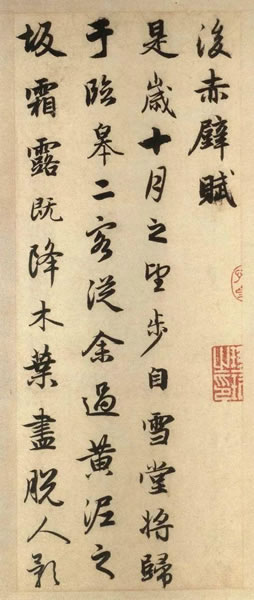 後赤壁賦
是歲十月之望步自雪堂將歸
于臨皋二客從余過黃泥之
坂霜露既降木葉盡脫人影